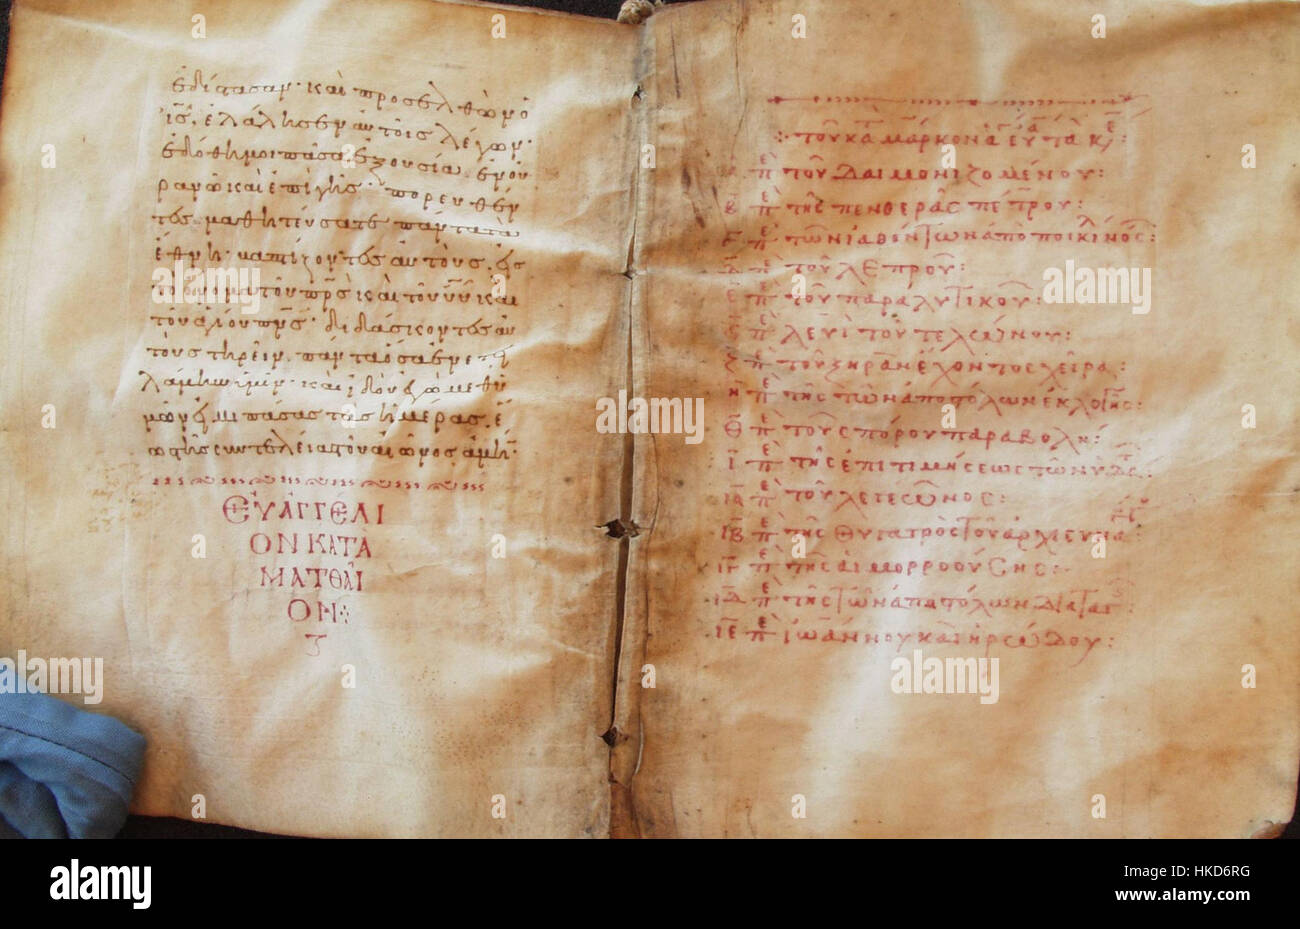 ἐδίστασαν· καὶ προσελθὼν ὁ
ις̅. ἐλάλησεν αὐτοῖς λέγων·
ἐδόθη μοι πᾶσα ἐξουσία. ἐν οὐ
ρανῶ καὶ ἐπὶ γῆς· πορευθέν
τες. μαθητεύσατε πάντα τὰ
ἔθνη· βαπτίζοντες αὐτοὺς. εἰς
τὸ ὄνομα τοῦ πρς̅ καὶ τοῦ υυ̅ καὶ
τοῦ ἁγίου πνς̅· διδάσκοντες αὐ
τοὺς τηρεῖν. πάντα ὅσα ἐνετει
λάμην ὑμῖν· καὶ ἰδοὺ ἐγὼ μεθ ὑ
μῶν εἰμι πάσας τὰς ἡμέρας. ἕ
ως τῆς συντελείας τοῦ αἰῶνος ἀμήν·
ΕΥΑΓΓΕΛΙ
ΟΝ ΚΑΤΑ
ΜΑΤΘΑΙ
ΟΝ
τοῦ κατὰ μάρκον ἁγίου εὐα τὰ κε
Α πε τοῦ δαιμονιζομένου:
Β πε τῆς πενθερᾶς πέτρου:
Γ πε τῶν ἰαθέντων ἀπὸ ποικίλ νόσ:
Δ πε τοῦ λεπροῦ:
Ε πε τοῦ παραλυτικοῦ:
πε λευὶ τοῦ τελώνου:
Ζ πε τοῦ ξηρὰν ἔχοντος χεῖρα:
Η πε τῆς τῶν ἀποστόλων ἐκλογῆς:
Θ πε τοῦ σπόρου παραβολή:
Ι πε τῆς ἐπιτιμήσεως τῶν ὑδάτ:
ΙΑ πε τοῦ λεγεῶνος:
ΙΒ πε τῆς θυγατρὸς τοῦ ἀρχισυναγ
ΙΓ πε τῆς αἱμορροούσης:
ΙΔ πε τῆς τῶν ἀποστόλων διαταγ
ΙΕ πε ἰωάννου καὶ ἡρώδου:
alamy
Image ID: HKD6RG
www.alamy.com